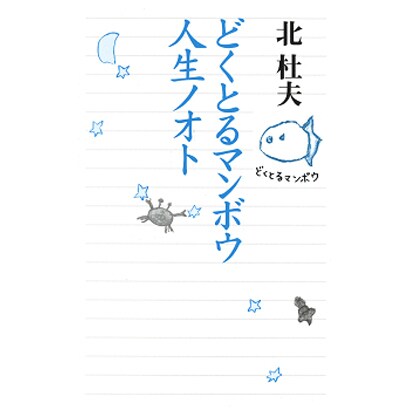 北 杜夫
どくとるマンボウ
人生ノオト
どくとるマンボウ